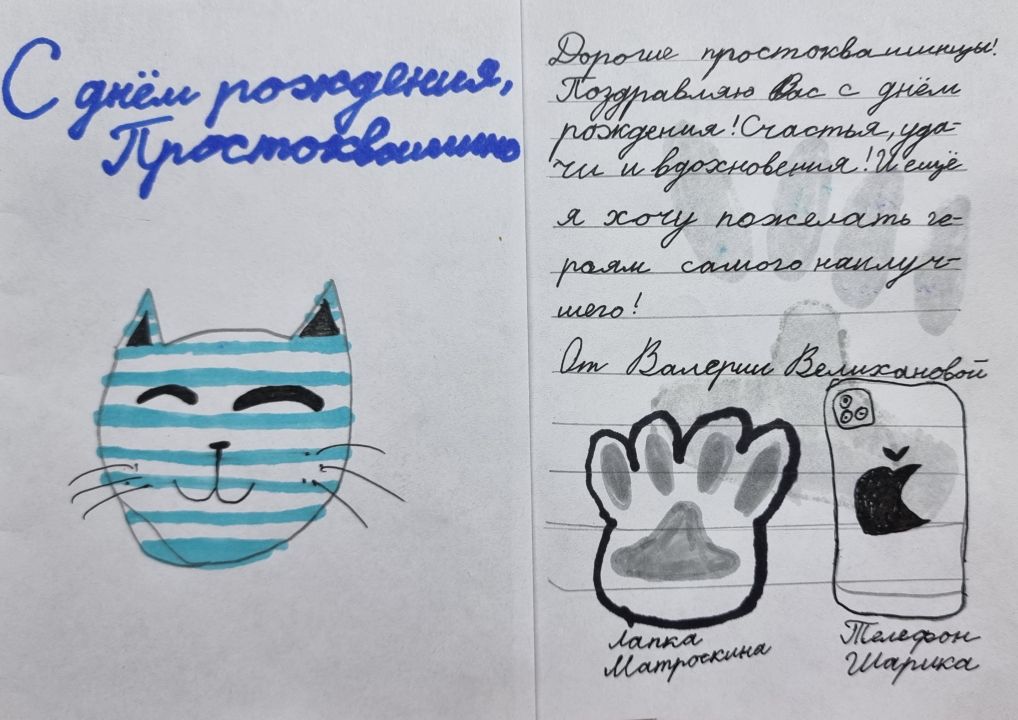 С днём рождения,
Простоквашино
Дорогие простоквашинцы!
Поздравляю Вас с днём
рождения! Счастья, уда-
чи и вдохновения! И ещё
я хочу пожелать ге-
роям самого наилуч-
шего!
От Валерии Велихановой
Лапка
Матроскина
Телефон
Шарика